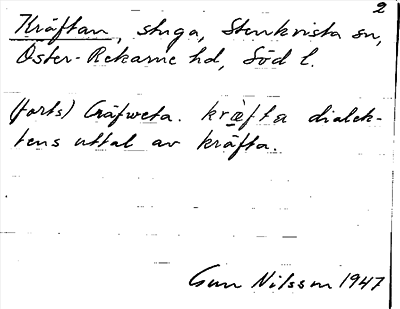 2
Kräftan, stuga, Stenkvista sn,
Öster-Rekarne hd, Söd l.
(forts) Gräfweta. kræfta dialek-
tens uttal av kräfta.
Gun Nilsson 1947